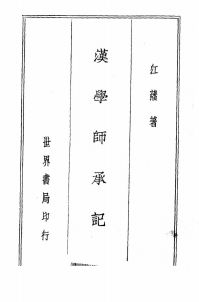 江藩著
漢學師承記
世界書局印行